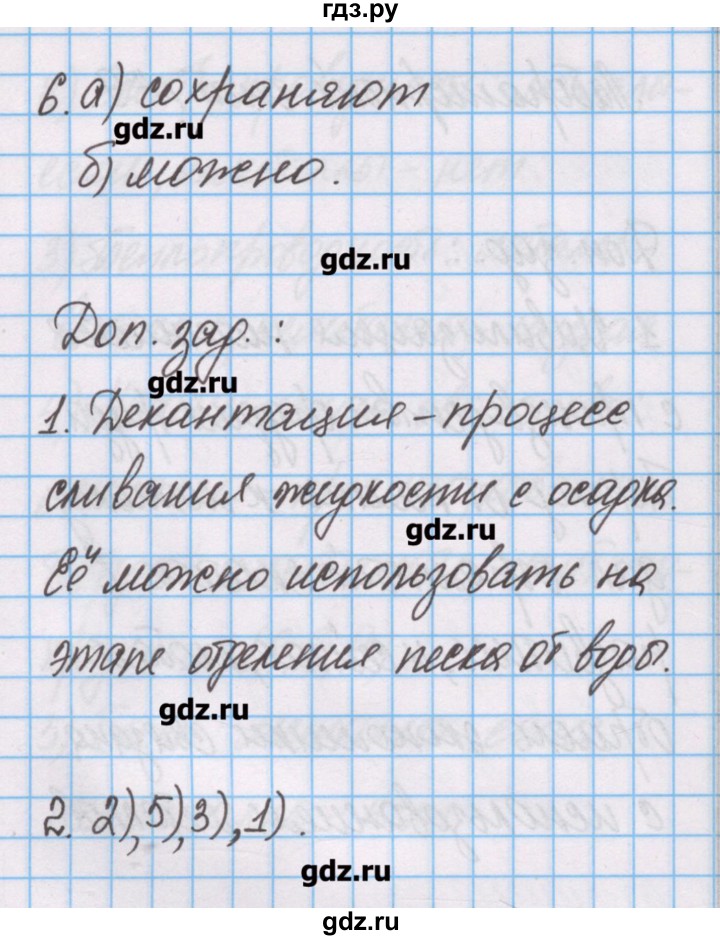 гдз.ру
6. а) сохраняют
gdz.ru
б) можно.
gdz.ru
Доп. зад. :
gdz.ru
1. Декантация – процесс
сливания жидкости с осадка.
gdz.ru
Её можно использовать на
этапе отделения песка от воды.
gdz.ru
2. 2), 5), 3), 1).
gdz.ru
gdz.ru